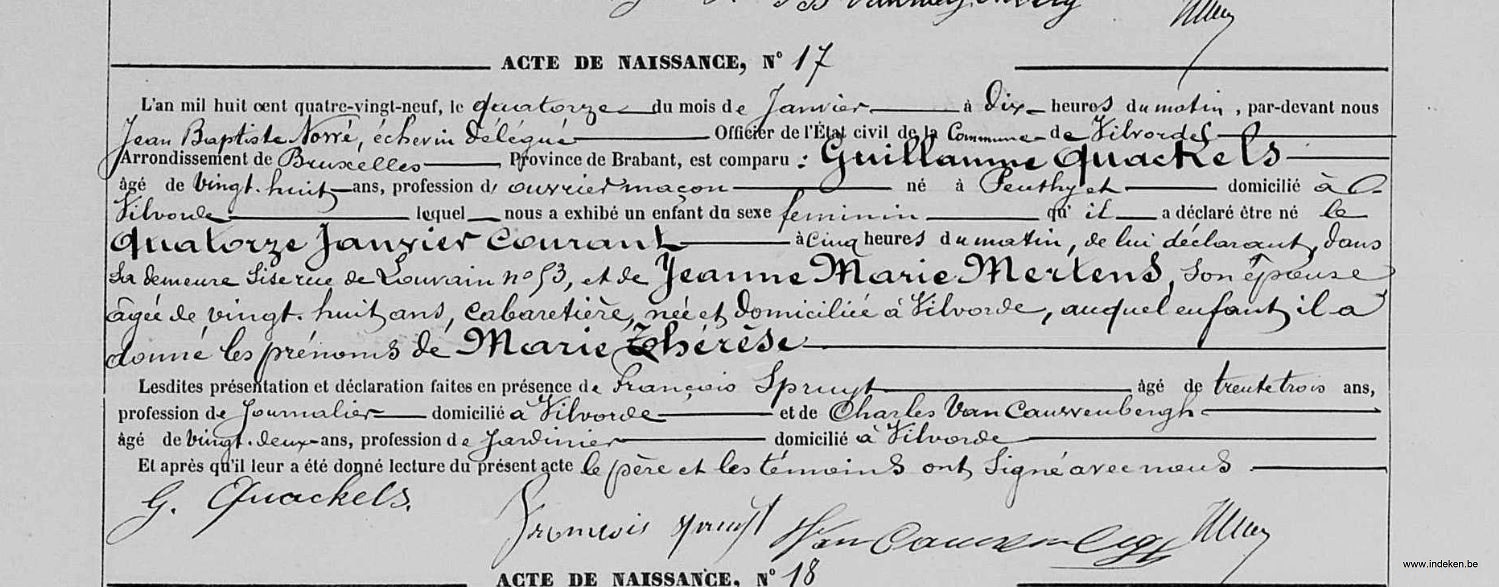 ACTE DE NAISSANCE, N° 17
L'an mil huit cent quatre-vingt-neuf, le quatorze du mois de Janvier à dix heures du matin, par-devant nous
Jean Baptiste Norré, échevin délégué Officier de l'État civil de la Commune de Vilvorde
Arrondissement de Bruxelles Province de Brabant, est comparu : Guillaume Quackels
âgé de vingt-huit ans, profession d'ouvrier maçon né à Peuthy et domicilié à
Vilvorde lequel nous a exhibé un enfant du sexe feminin qu'il a déclaré être né le
quatorze Janvier courant à cinq heures du matin, de lui déclarant, dans
sa demeure sise rue de Louvain n° 53, et de Jeanne Marie Mertens, son épouse
âgée de vingt-huit ans, cabaretière, née et domiciliée à Vilvorde, auquel enfant il a
donné les prénoms de Marie Thérèse
Lesdites présentation et déclaration faites en présence de François Spruyt âgé de trente trois ans,
profession de Journalier domicilié à Vilvorde et de Charles Van Cauwenbergh
âgé de vingt-deux ans, profession de Jardinier domicilié à Vilvorde
Et après qu'il leur a été donné lecture du présent acte le père et les témoins ont signé avec nous
G. Quackels. François Spruyt Van Cauwenbergh
ACTE DE NAISSANCE, N° 18
www.indeken.be